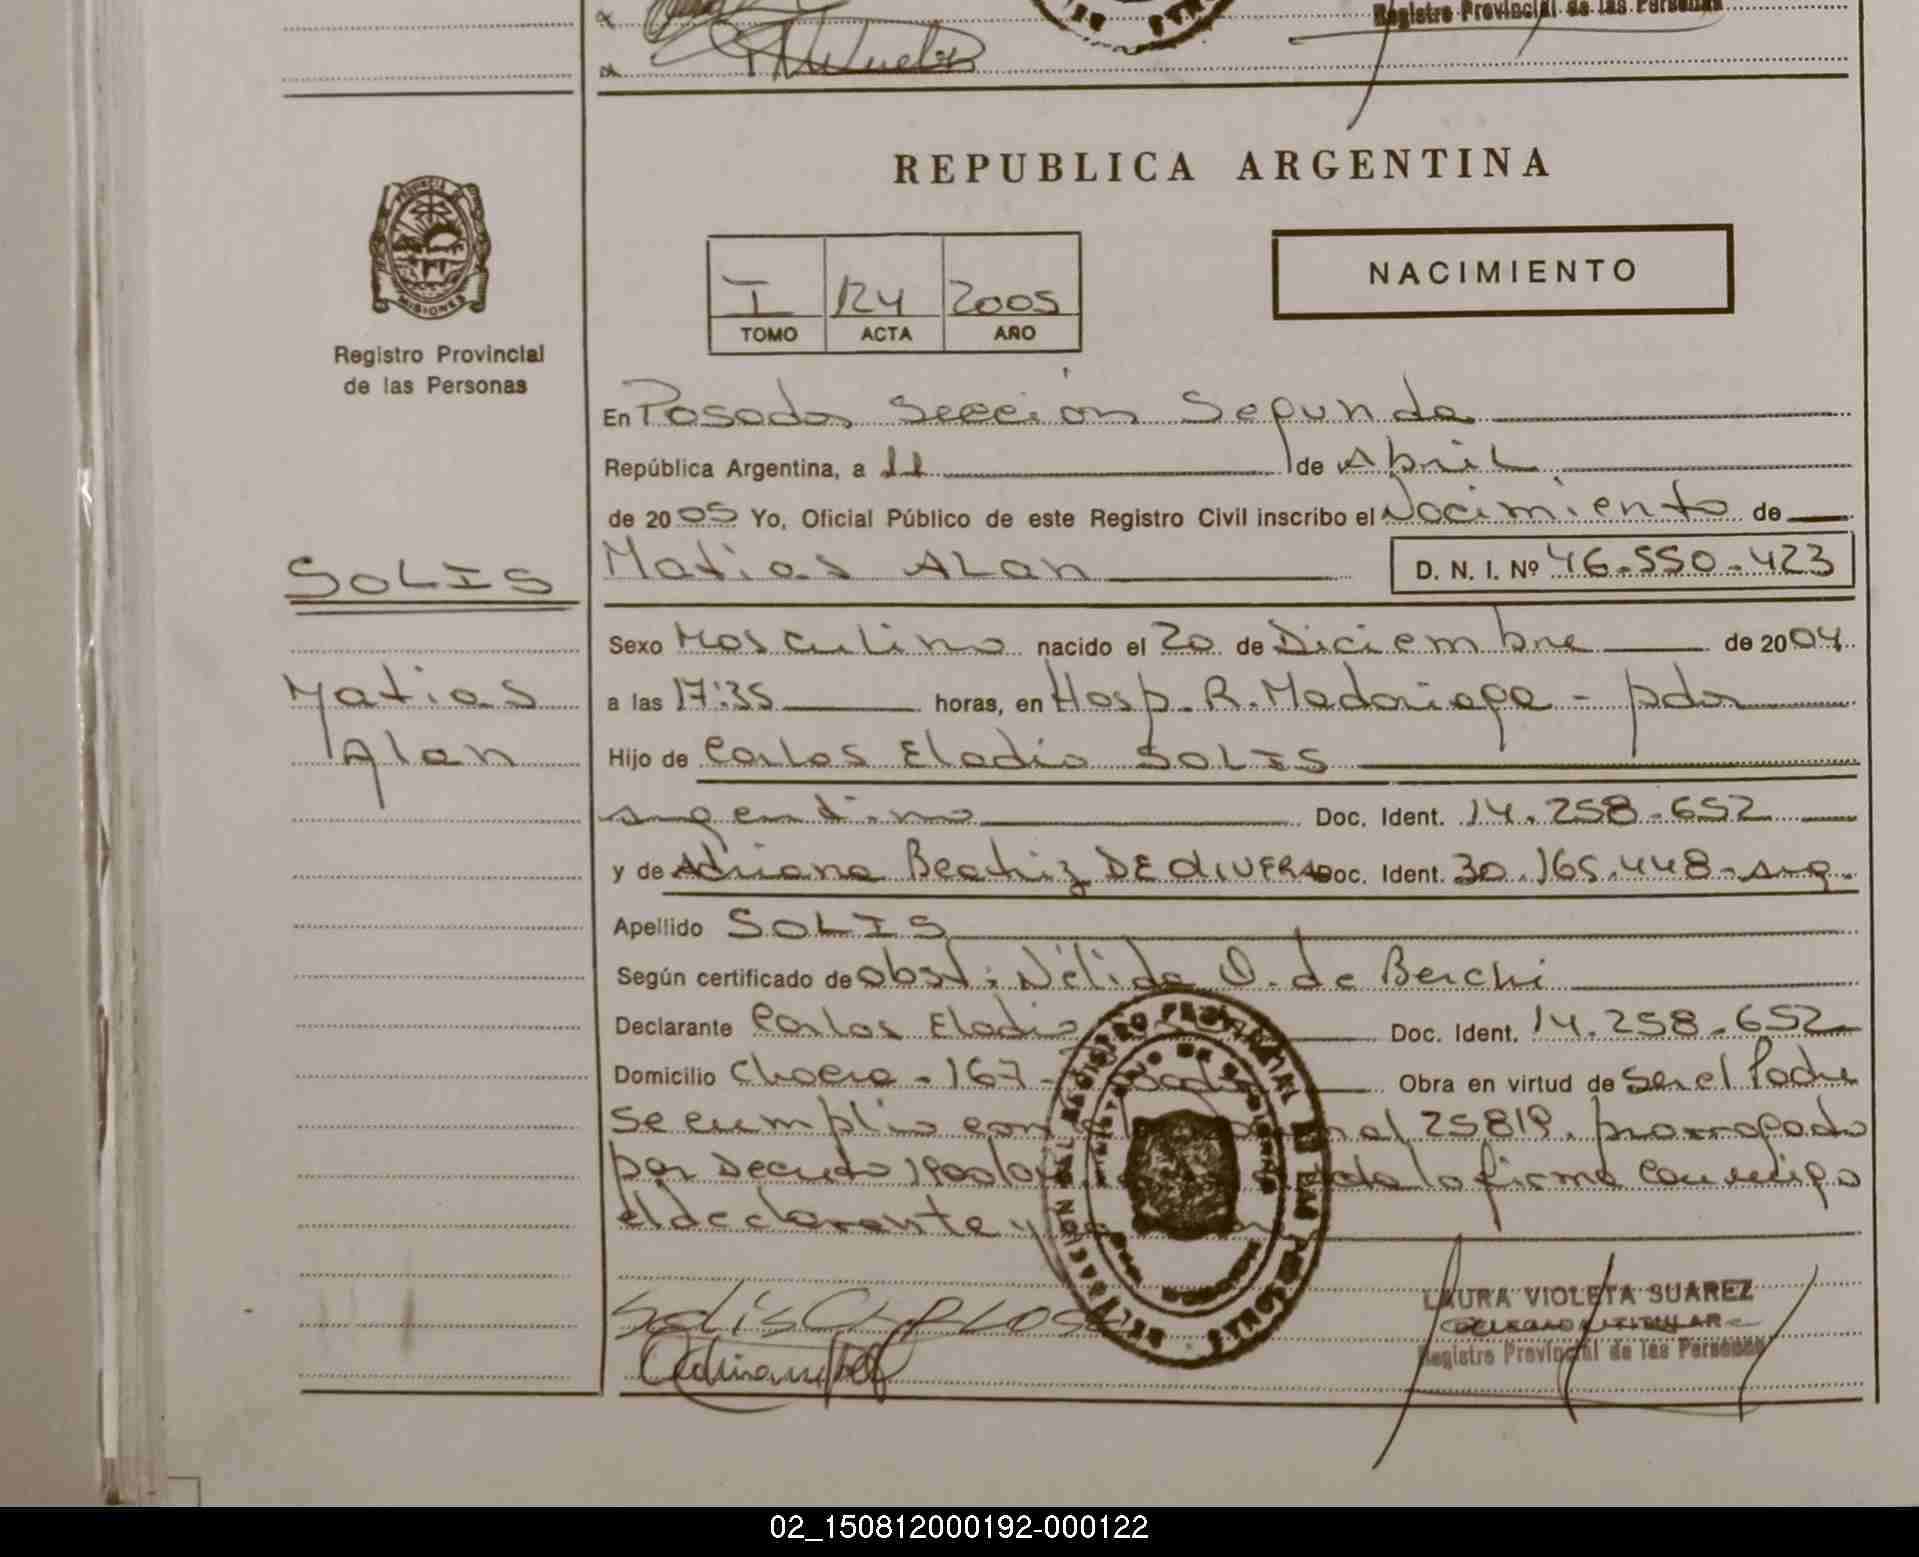 Registro Provincial de las Personas
REPUBLICA ARGENTINA
PROVINCIA DE
MISIONES
Registro Provincial
de las Personas
I 124 2005
TOMO ACTA AÑO
NACIMIENTO
En Posadas Sección Segunda
República Argentina, a 11 de Abril
de 2005 Yo, Oficial Público de este Registro Civil inscribo el Nacimiento de
SOLIS
Matias ALan D. N. I. Nº 46.550.423
Sexo Masculino nacido el 20 de Diciembre de 2004
Matias
a las 17:35 horas, en Hosp. R. Madariaga - pdas
Alan
Hijo de Carlos Eladio SOLIS
argentino Doc. Ident. 14.258.652
y de Adriana Beatriz DE OLIVERA Doc. Ident. 30.165.448 - arg.
Apellido SOLIS
Según certificado de obst: Nélida O. de Berchi
Declarante Carlos Eladio Doc. Ident. 14.258.652
Domicilio Chacra - 167 - Obra en virtud de ser el Padre
Se cumplio con 25819. prorrogado
por Decreto la firma conmigo
el declarante y
REGISTRO PROVINCIAL DE LAS PERSONAS
MINISTERIO DE GOBIERNO
Solis CARLOS
LAURA VIOLETA SUAREZ
DELEGADO TITULAR
Registro Provincial de las Personas
02_150812000192-000122